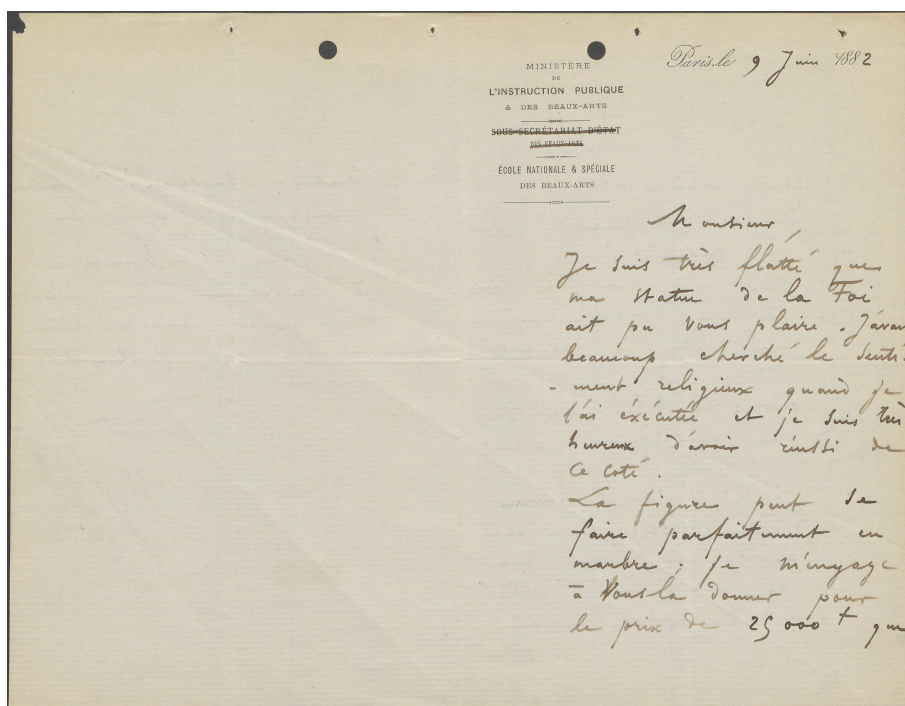 MINISTÈRE
DE
L'INSTRUCTION PUBLIQUE
& DES BEAUX-ARTS
SOUS-SECRÉTARIAT D'ÉTAT
DES BEAUX-ARTS
ÉCOLE NATIONALE & SPÉCIALE
DES BEAUX-ARTS
Paris, le 9 Juin 1882
Monsieur,
Je suis très flatté que
ma statue de la Foi
ait pu vous plaire. J'avais
beaucoup cherché le senti-
-ment religieux quand je
l'ai éxécutée et je suis très
heureux d'avoir réussi de
ce coté.
La figure peut se
faire parfaitement en
marbre; je m'engage
à vous la donner pour
le prix de 25000 f que